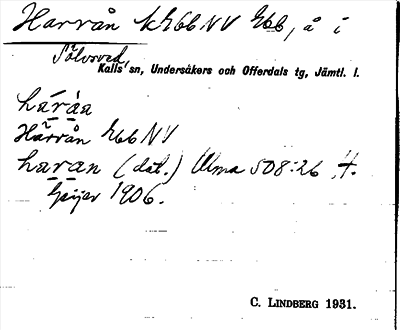 Harrån kh66NV h66, å i
Sölvsved,
Kalls sn, Undersåkers och Offerdals tg, Jämtl. l.
håråa
Härrån h66NV
haran (dat.) Ulma 508:26, 4.
Geijer 1906.
C. LINDBERG 1931.